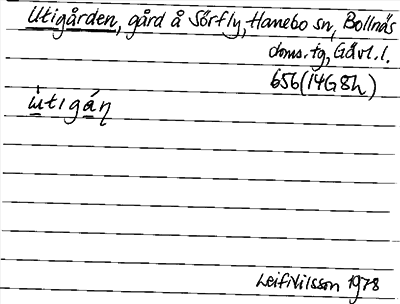 Utigården, gård å Sörfly, Hanebo sn, Bollnäs
doms.tg, Gävl.l.
656 (14G8h)
ùtigáɳ
Leif Nilsson 1978